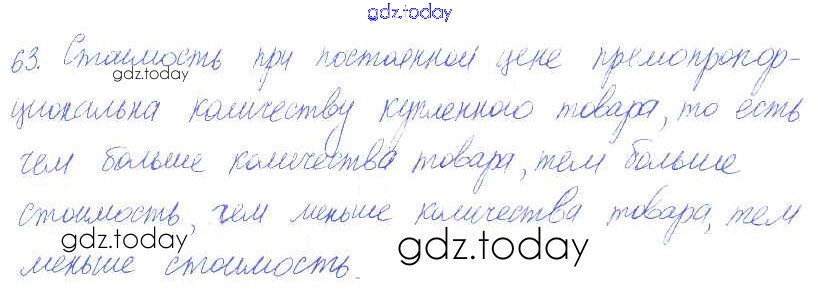 gdz.today
63. Стоимость при постоянной цене прямопропор-
gdz.today
циональна количеству купленного товара, то есть
чем больше количества товара, тем больше
стоимость, чем меньше количества товара, тем
gdz.today
gdz.today
меньше стоимость.